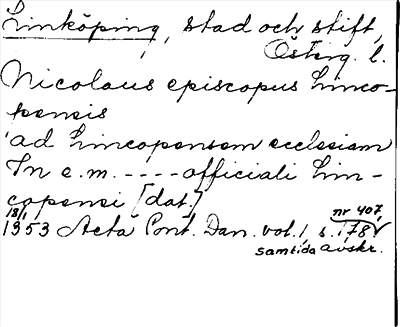 Linköping, stad och stift,
Österg. l.
Nicolaus episcopus Linco-
pensis
ad Lincopensem ecclesiam
In e.m. ---- officiali Lin-
copensi [dat.]
18/1 nr 407,
1353 Acta Pont. Dan. vol. 1, s. 178
samtida avskr.